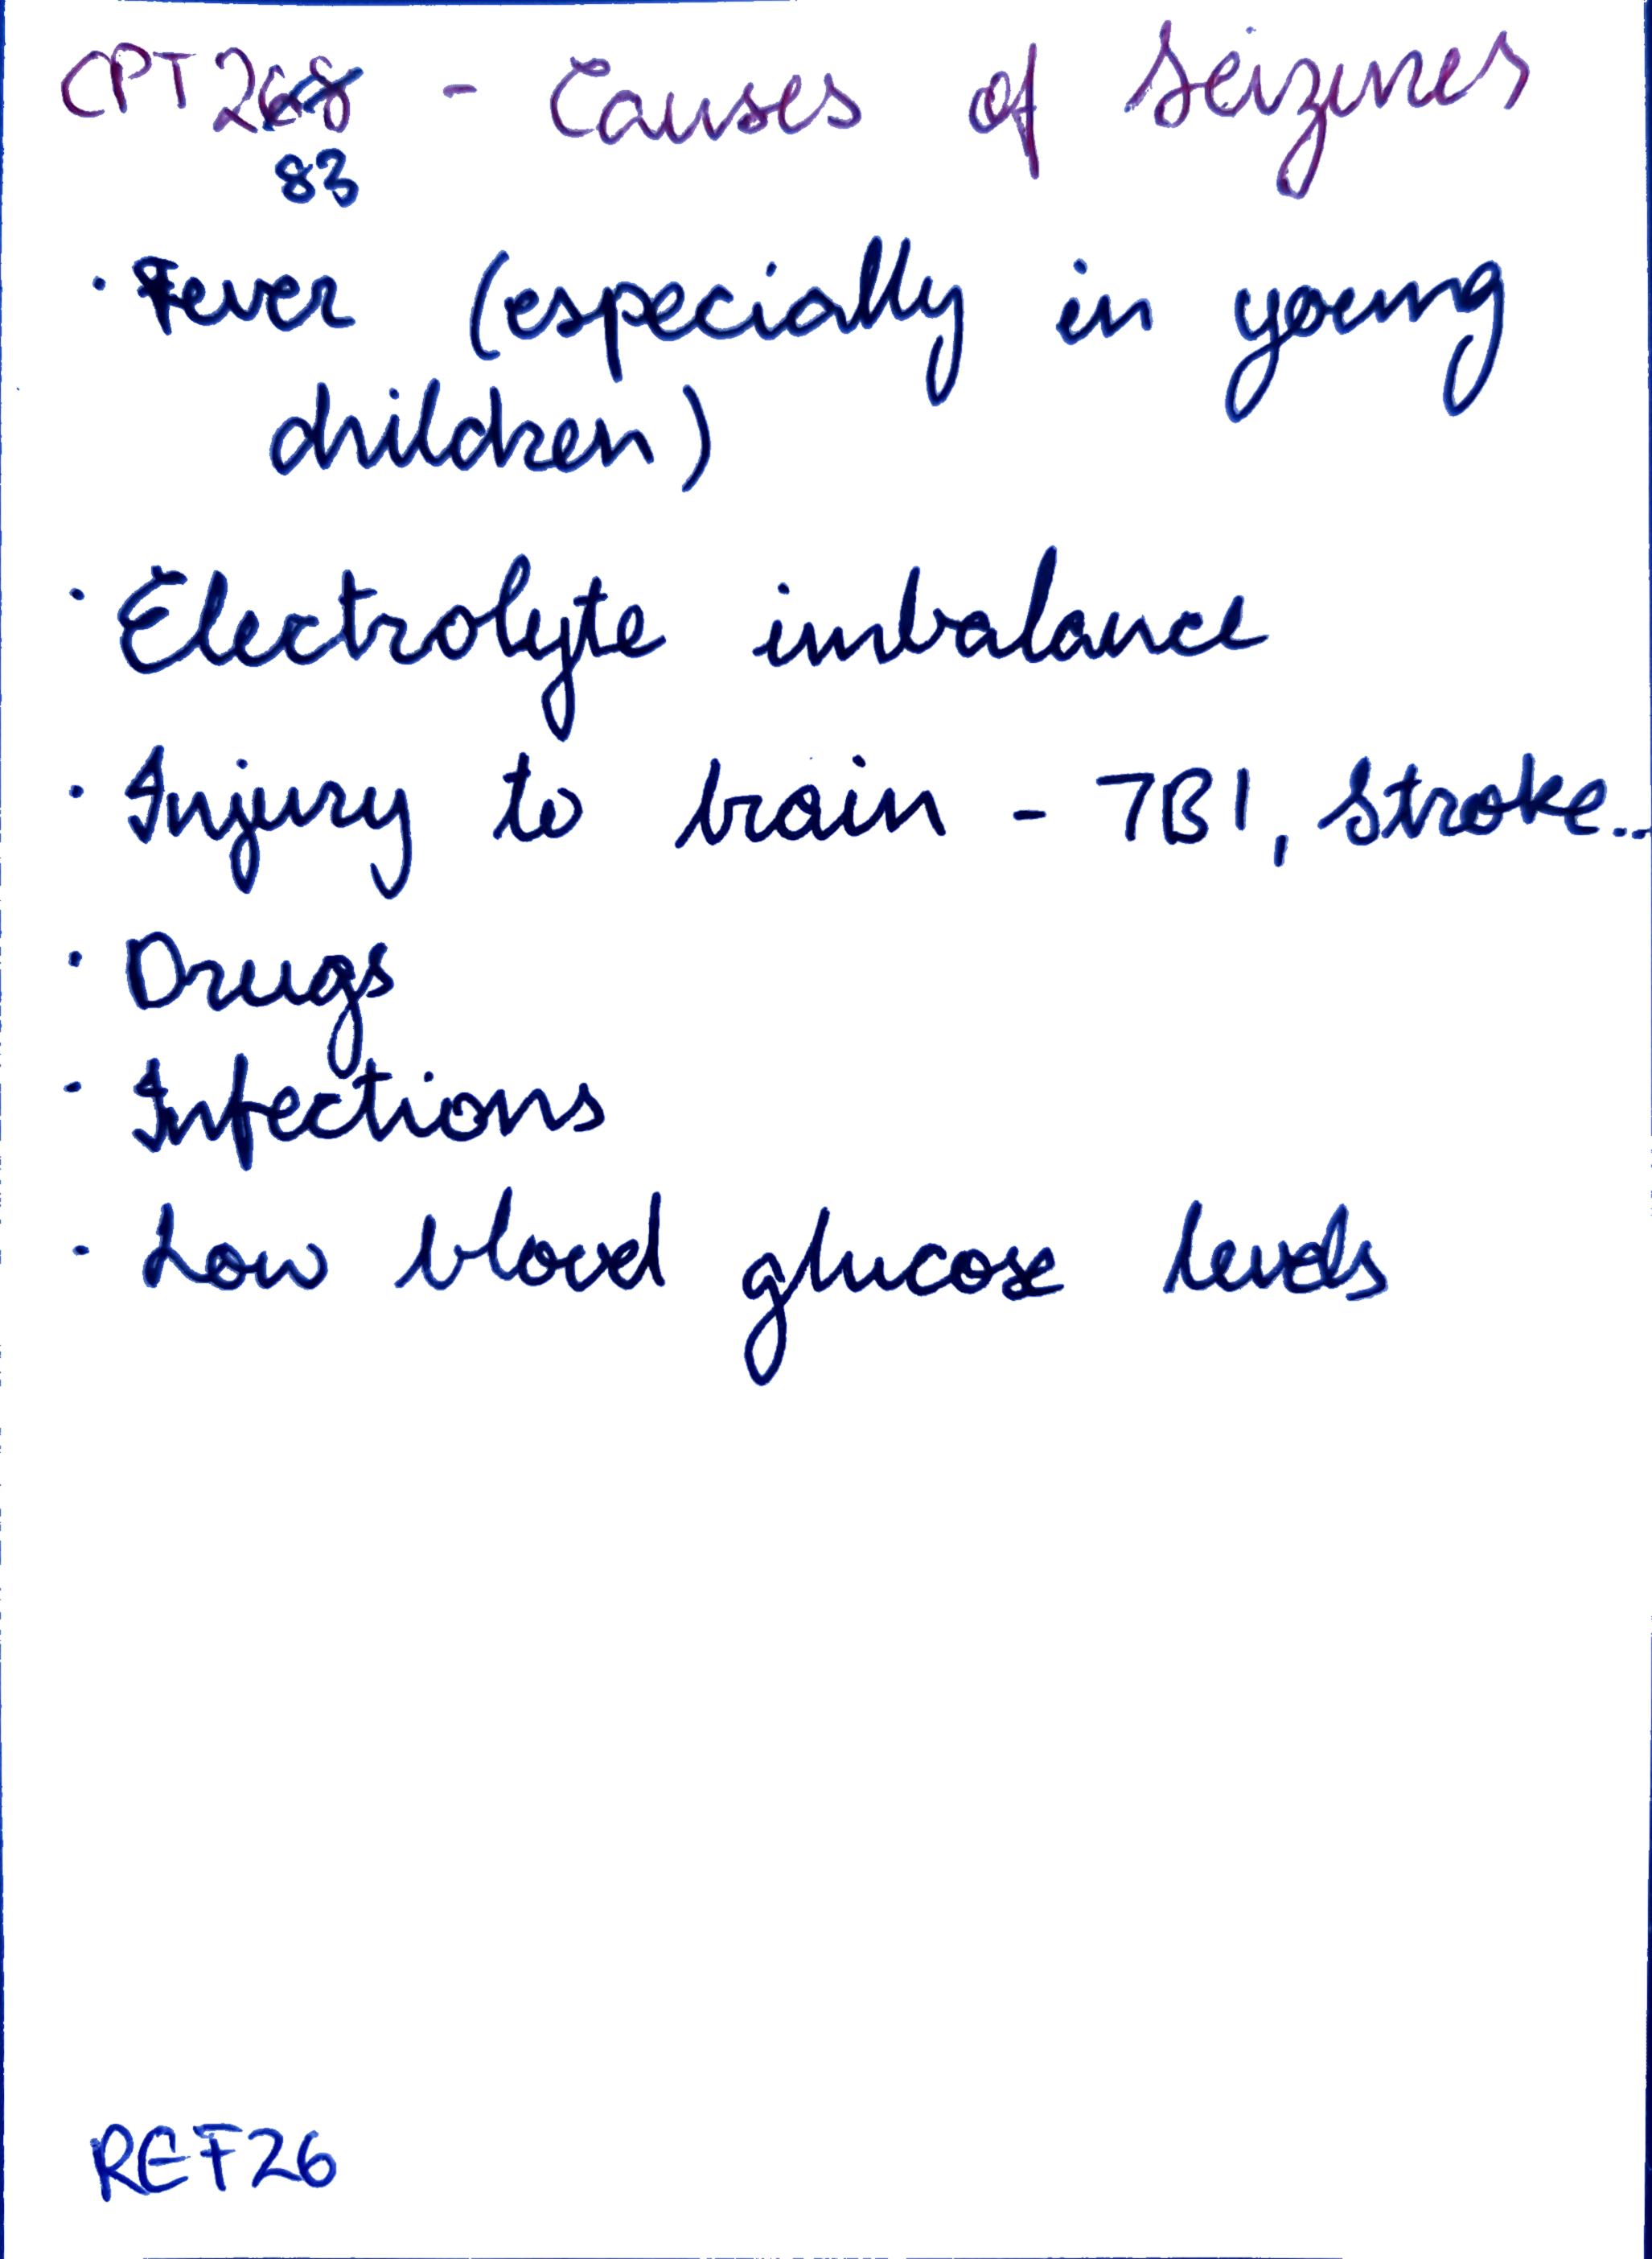 CPT268 - Causes of seizures
83
· Fever (especially in young
children)
· Electrolyte imbalance
· Injury to brain - TBI, stroke...
· Drugs
· Infections
· Low blood glucose levels
REF26